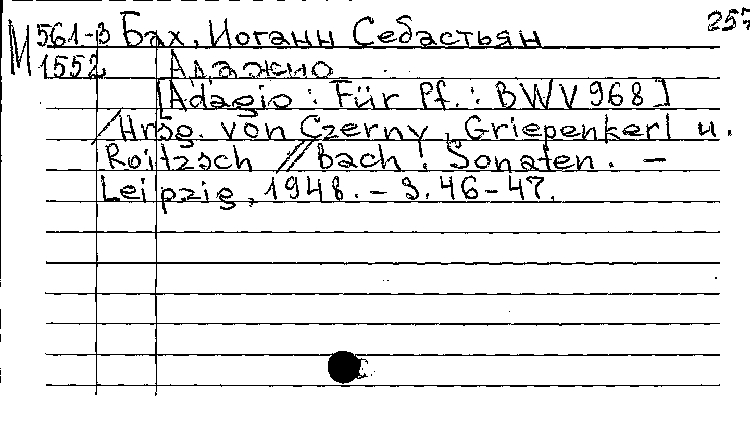 257
М 561-3 Бах, Иоганн Себастьян
1552 Адажио
[Adagio : Für Pf. : BWV 968]
/Hrsg. von Czerny, Griepenkerl u.
Roitzsch // Bach : Sonaten. –
Leipzig, 1948. – S. 46-47.